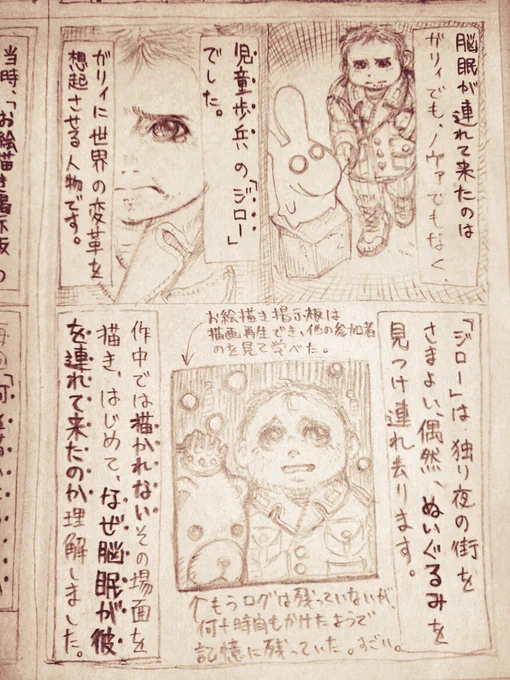 脳眠が連れて来たのは
ガリィでも、ノヴァでもなく、
児童歩兵の「ジロー」
でした。
ガリィに世界の変革を
想起させる人物です。
当時、「お絵描き掲示板」の
「ジロー」は独り夜の街を
さまよい、偶然、ぬいぐるみを
見つけ連れ去ります。
お絵描き掲示板は
描画再生でき、他の参加者
のを見て学べた。
↑もうログは残っていないが、
何十時間もかけたようで
記憶に残っていた。すごい。
作中では描かれないその場面を
描き、はじめて、なぜ脳眠が彼
を連れて来たのか理解しました。